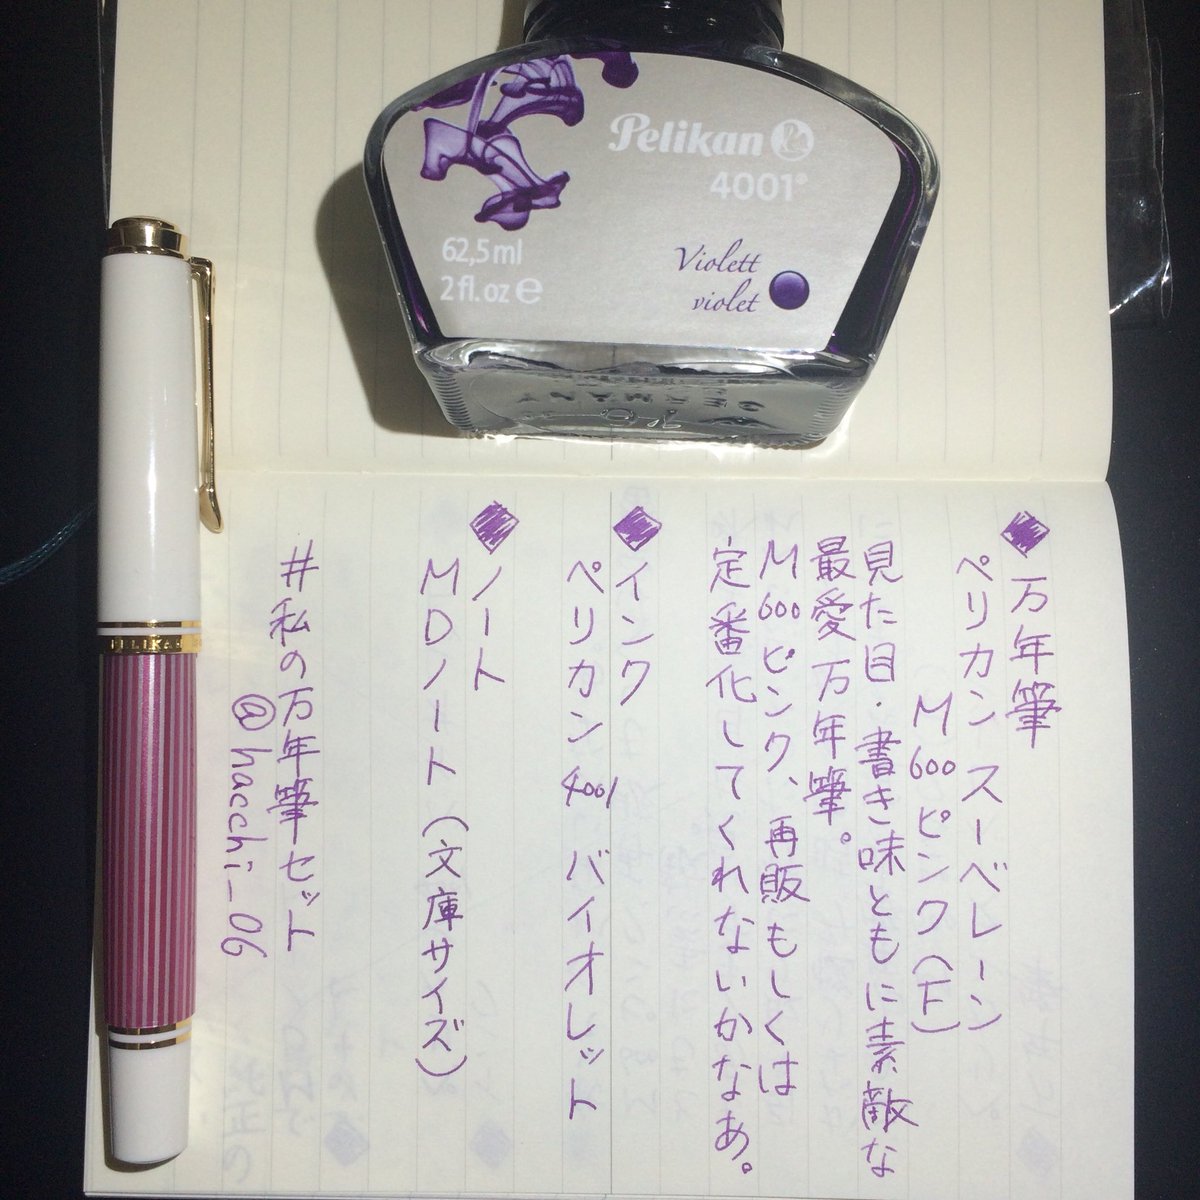 Pelikan
4001®
62,5 ml
2 fl. oz ℮
Violett
violet
GERMANY
PELIKAN
◆万年筆
ペリカン スーベレーン
M600ピンク(F)
見た目・書き味ともに素敵な
最愛万年筆。
M600ピンク、再販もしくは
定番化してくれないかなあ。
◆インク
ペリカン4001 バイオレット
◆ノート
MDノート(文庫サイズ)
#私の万年筆セット
@hacchi_06